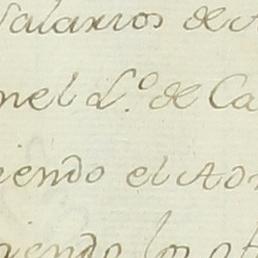 Salarios de A
nel L.º de Ca
iendo el Ad
iendo los ot